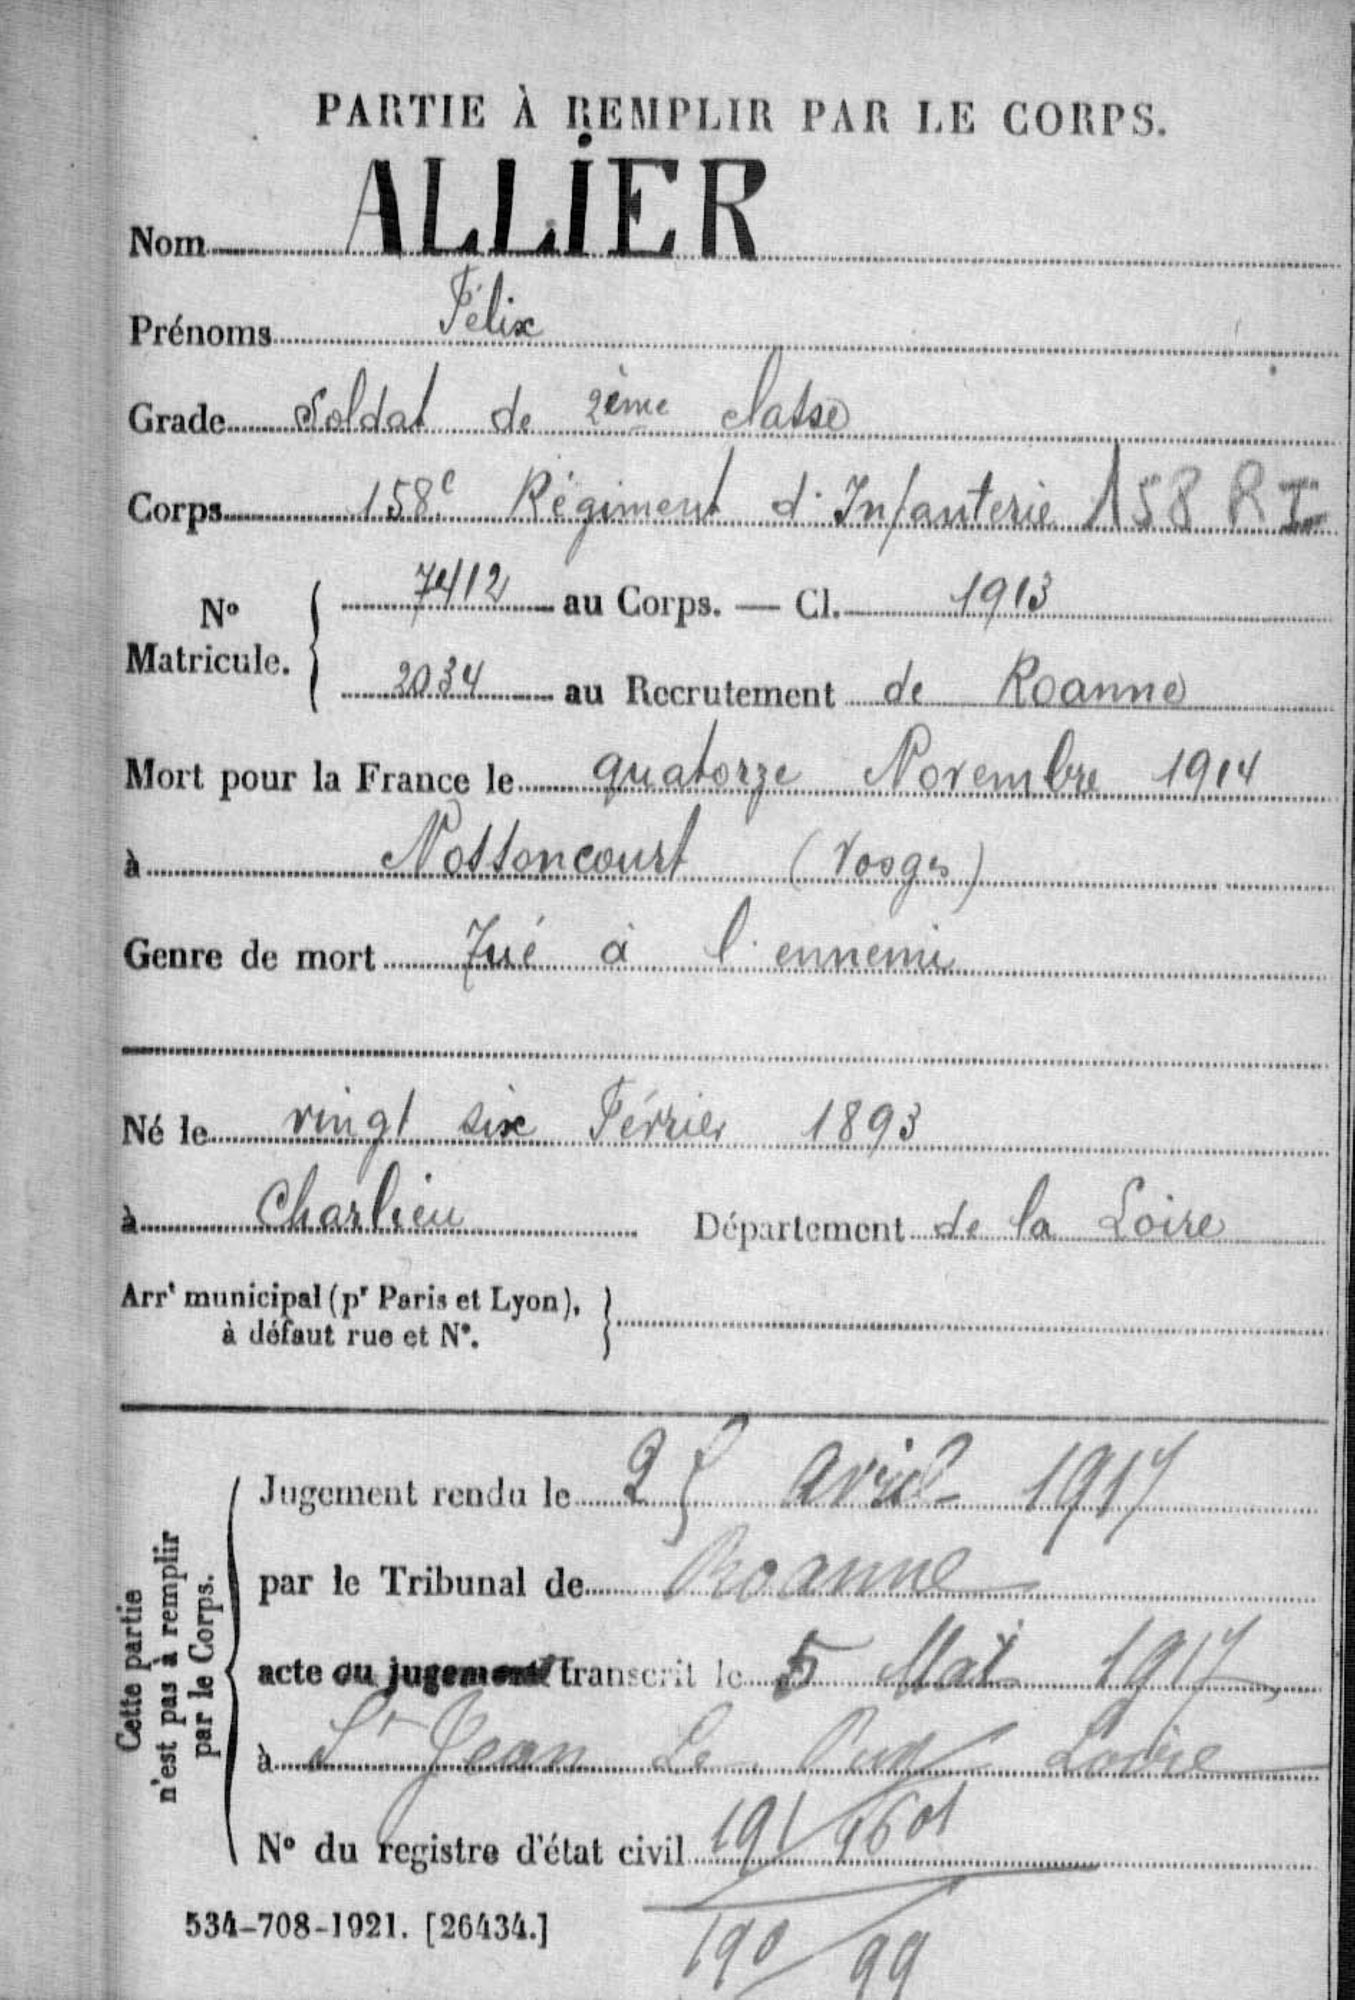 PARTIE À REMPLIR PAR LE CORPS.
Nom ALLIER
Prénoms Félix
Grade Soldat de 2ème classe
Corps 158e Régiment d'Infanterie 158 RI
No Matricule. { 7412 au Corps. — Cl. 1913
2034 au Recrutement de Roanne
Mort pour la France le quatorze Novembre 1914
à Nossoncourt (Vosges)
Genre de mort Tué à l'ennemi
Né le vingt six Février 1893
à Charlieu Département de la Loire
Arrt municipal (pr Paris et Lyon), à défaut rue et No. }
Cette partie n'est pas à remplir par le Corps.
Jugement rendu le 25 Avril 1917
par le Tribunal de Roanne
acte ou jugement transcrit le 5 Mai 1917
à St Jean Le Puy Loire
No du registre d'état civil 191/
190/99
534-708-1921. [26434.]